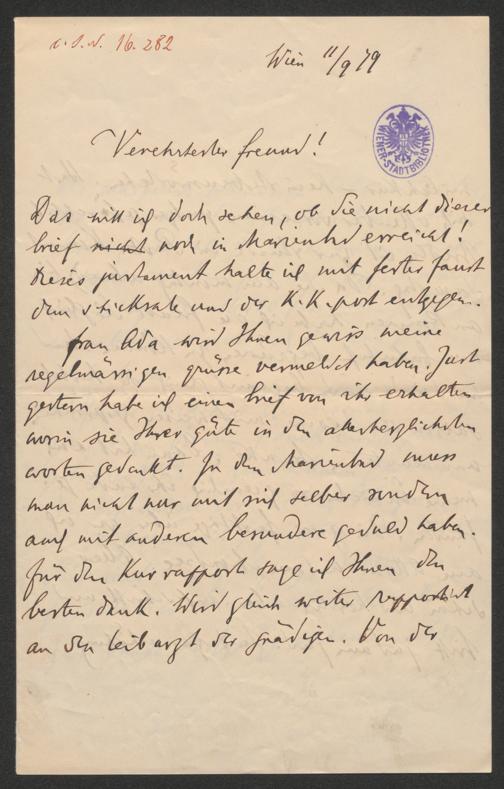 I. N. 16.282
Wien 11/9 79
WIENER-STADTBIBLIOTHEK
Verehrtester freund!
Das will ich doch sehen, ob Sie nicht dieser
brief nicht noch in Marienbd erreicht!
Dieses justament halte ich mit fester faust
dem schicksale und der K.K. post entgegen.
frau Ada wird Ihnen gewiss meine
regelmässigen grüsse vermeldet haben. Just
gestern habe ich einen brief von ihr erhalten
worin sie Ihrer güte in den allerherzlichsten
worten gedenkt. In dem Marienbad muss
man nicht nur mit sich selber sondern
auch mit anderen besondere geduld haben.
für den Kurrapport sage ich Ihnen den
besten dank. Wird gleich weiter rapportirt
an den leibarzt der gnädigen. Von der